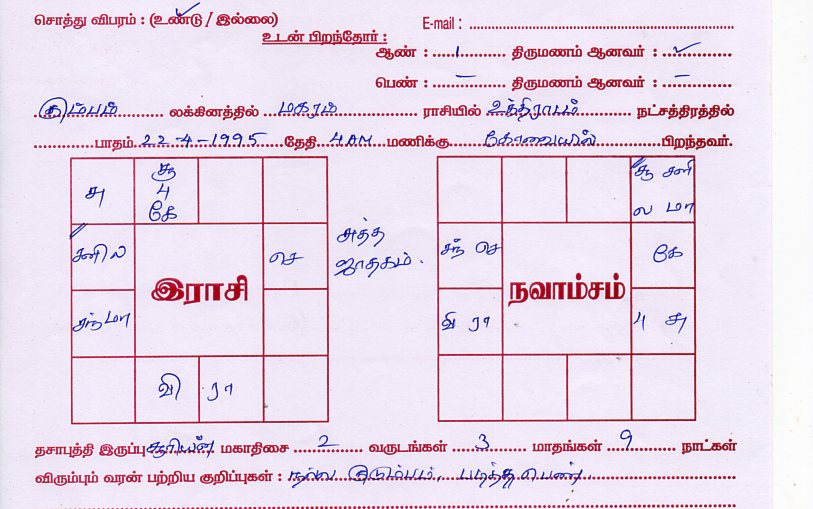 சொத்து விபரம் : (உண்டு / இல்லை) E-mail :
உடன் பிறந்தோர் :
ஆண் : 1 திருமணம் ஆனவர் : ✓
பெண் : – திருமணம் ஆனவர் : –
கும்பம் லக்கினத்தில் மகரம் ராசியில் உத்திராடம் நட்சத்திரத்தில்
பாதம் 22-4-1995 தேதி 4AM மணிக்கு கோவையில் பிறந்தவர்.
சு சூ 4 கே
சனி ல செ
சந் மா
வி ரா
இராசி
அத்த ஜாதகம்.
சூ சனி ல மா
சந் செ கே
வி ரா 4 சு
நவாம்சம்
தசாபுத்தி இருப்பு சூரியன் மகாதிசை 2 வருடங்கள் 3 மாதங்கள் 9 நாட்கள்
விரும்பும் வரன் பற்றிய குறிப்புகள் : நல்ல குடும்பம், படித்த பெண்.